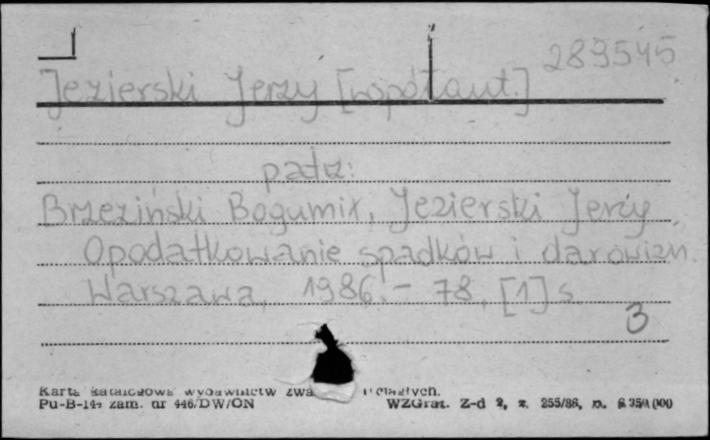 289545
Jezierski Jerzy [współaut.]
patrz:
Brzeziński Bogumił, Jezierski Jerzy
Opodatkowanie spadków i darowizn.
Warszawa, 1986. - 78, [1] s.
3
Karta katalogowa wydawnictw
Pu-B-144 zam. nr 446/DW/ON WZGraf. Z-d 2, z. 255/86, n.